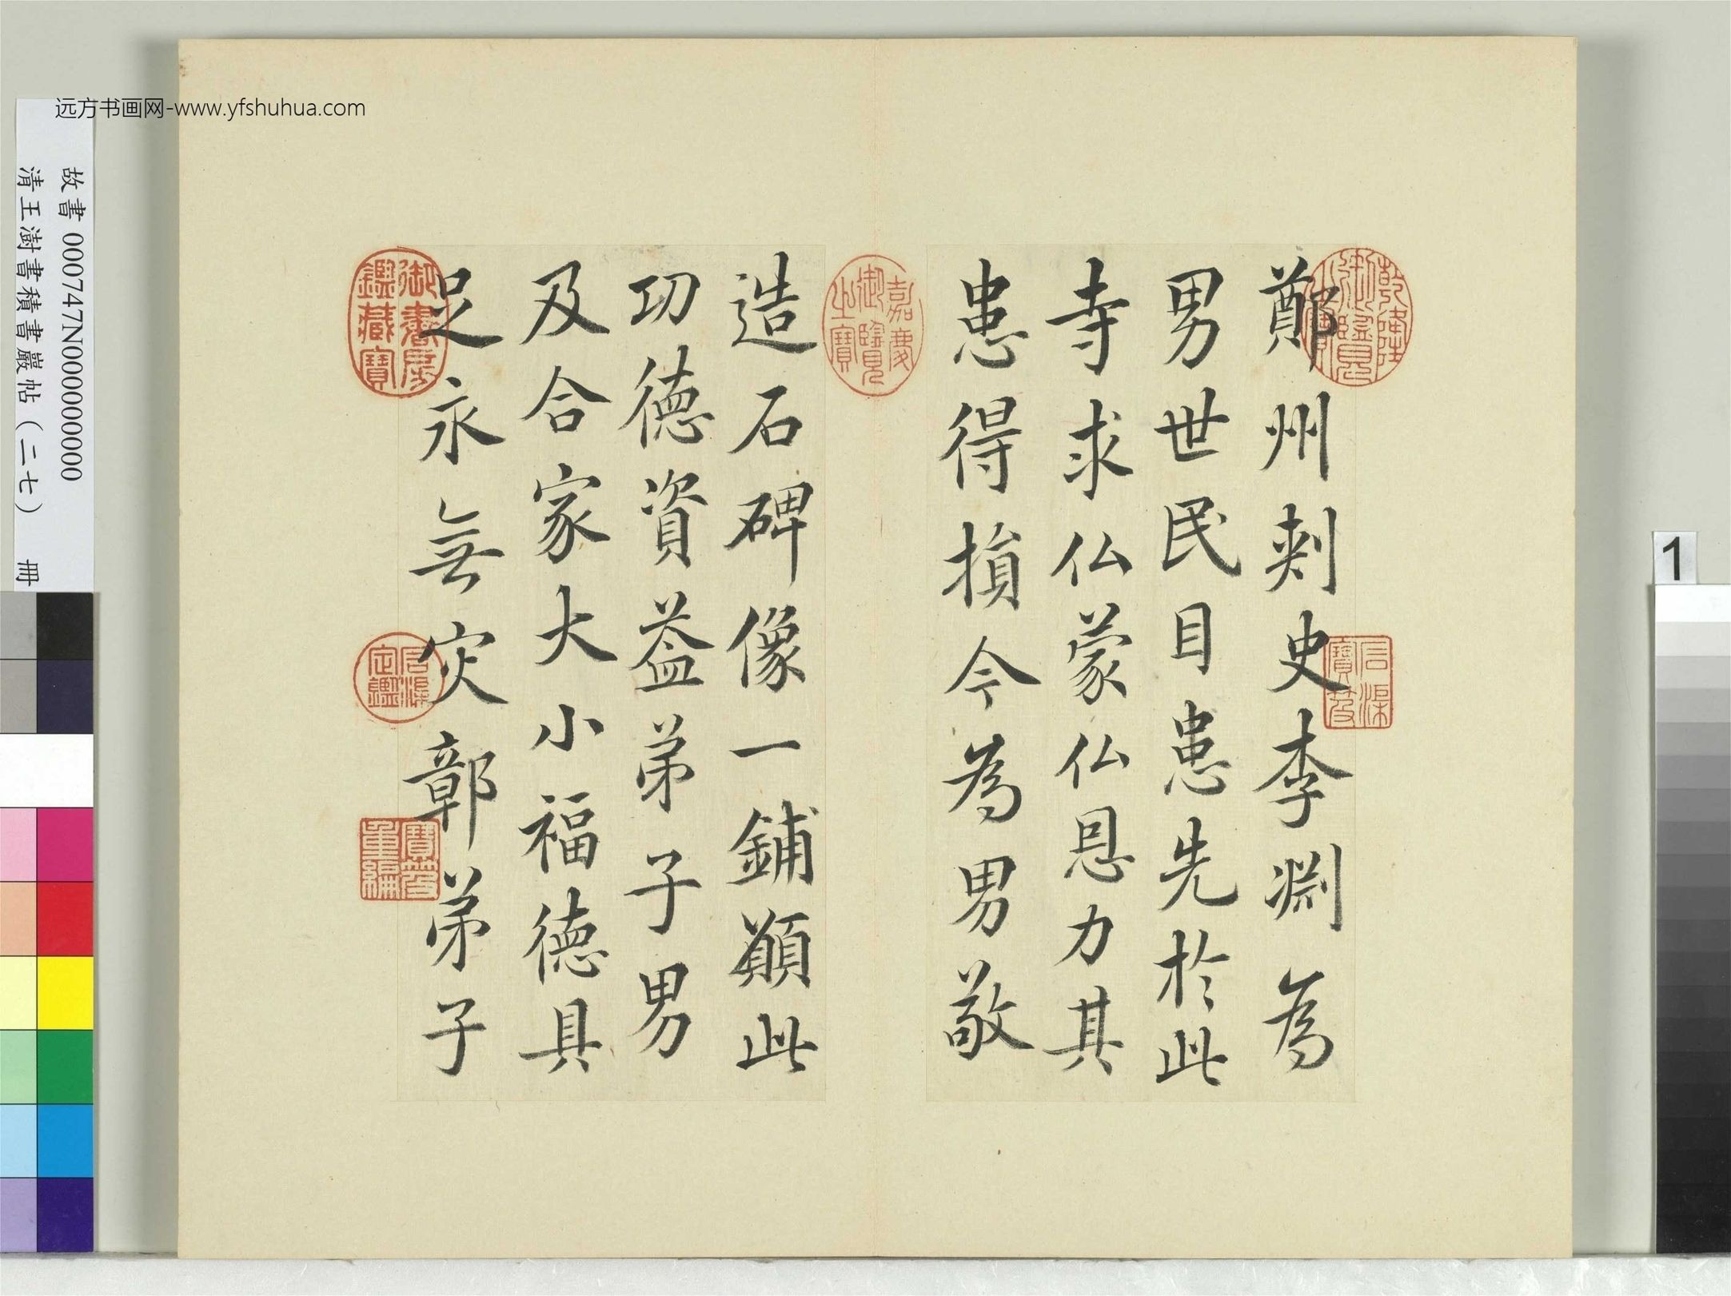 远方书画网-www.yfshuhua.com
故書 000747N000000000
清王澍書積書巖帖（二七） 冊
1
鄭州刾史李渊為
男世民目患先於此
寺求仏蒙仏恩力其
患得損今為男敬
造石碑像一鋪願此
功德資益弟子男
及合家大小福德具
足永無灾鄣弟子
乾隆御覽之寶
石渠寶笈
嘉慶御覽之寶
御書房鑑藏寶
石渠定鑑
寶笈重編